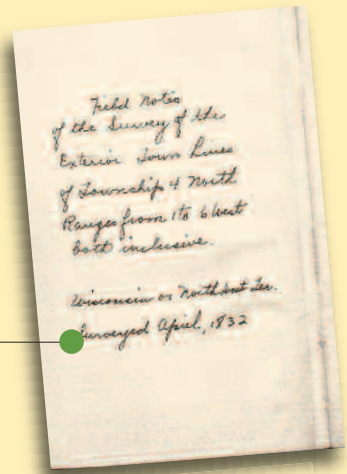 Field Notes
of the Survey of the
Exterior Town Lines
of Township 4 North
Ranges from 1 to 6 West
both inclusive.
Wisconsin or Northwest Ter.
Surveyed April, 1832